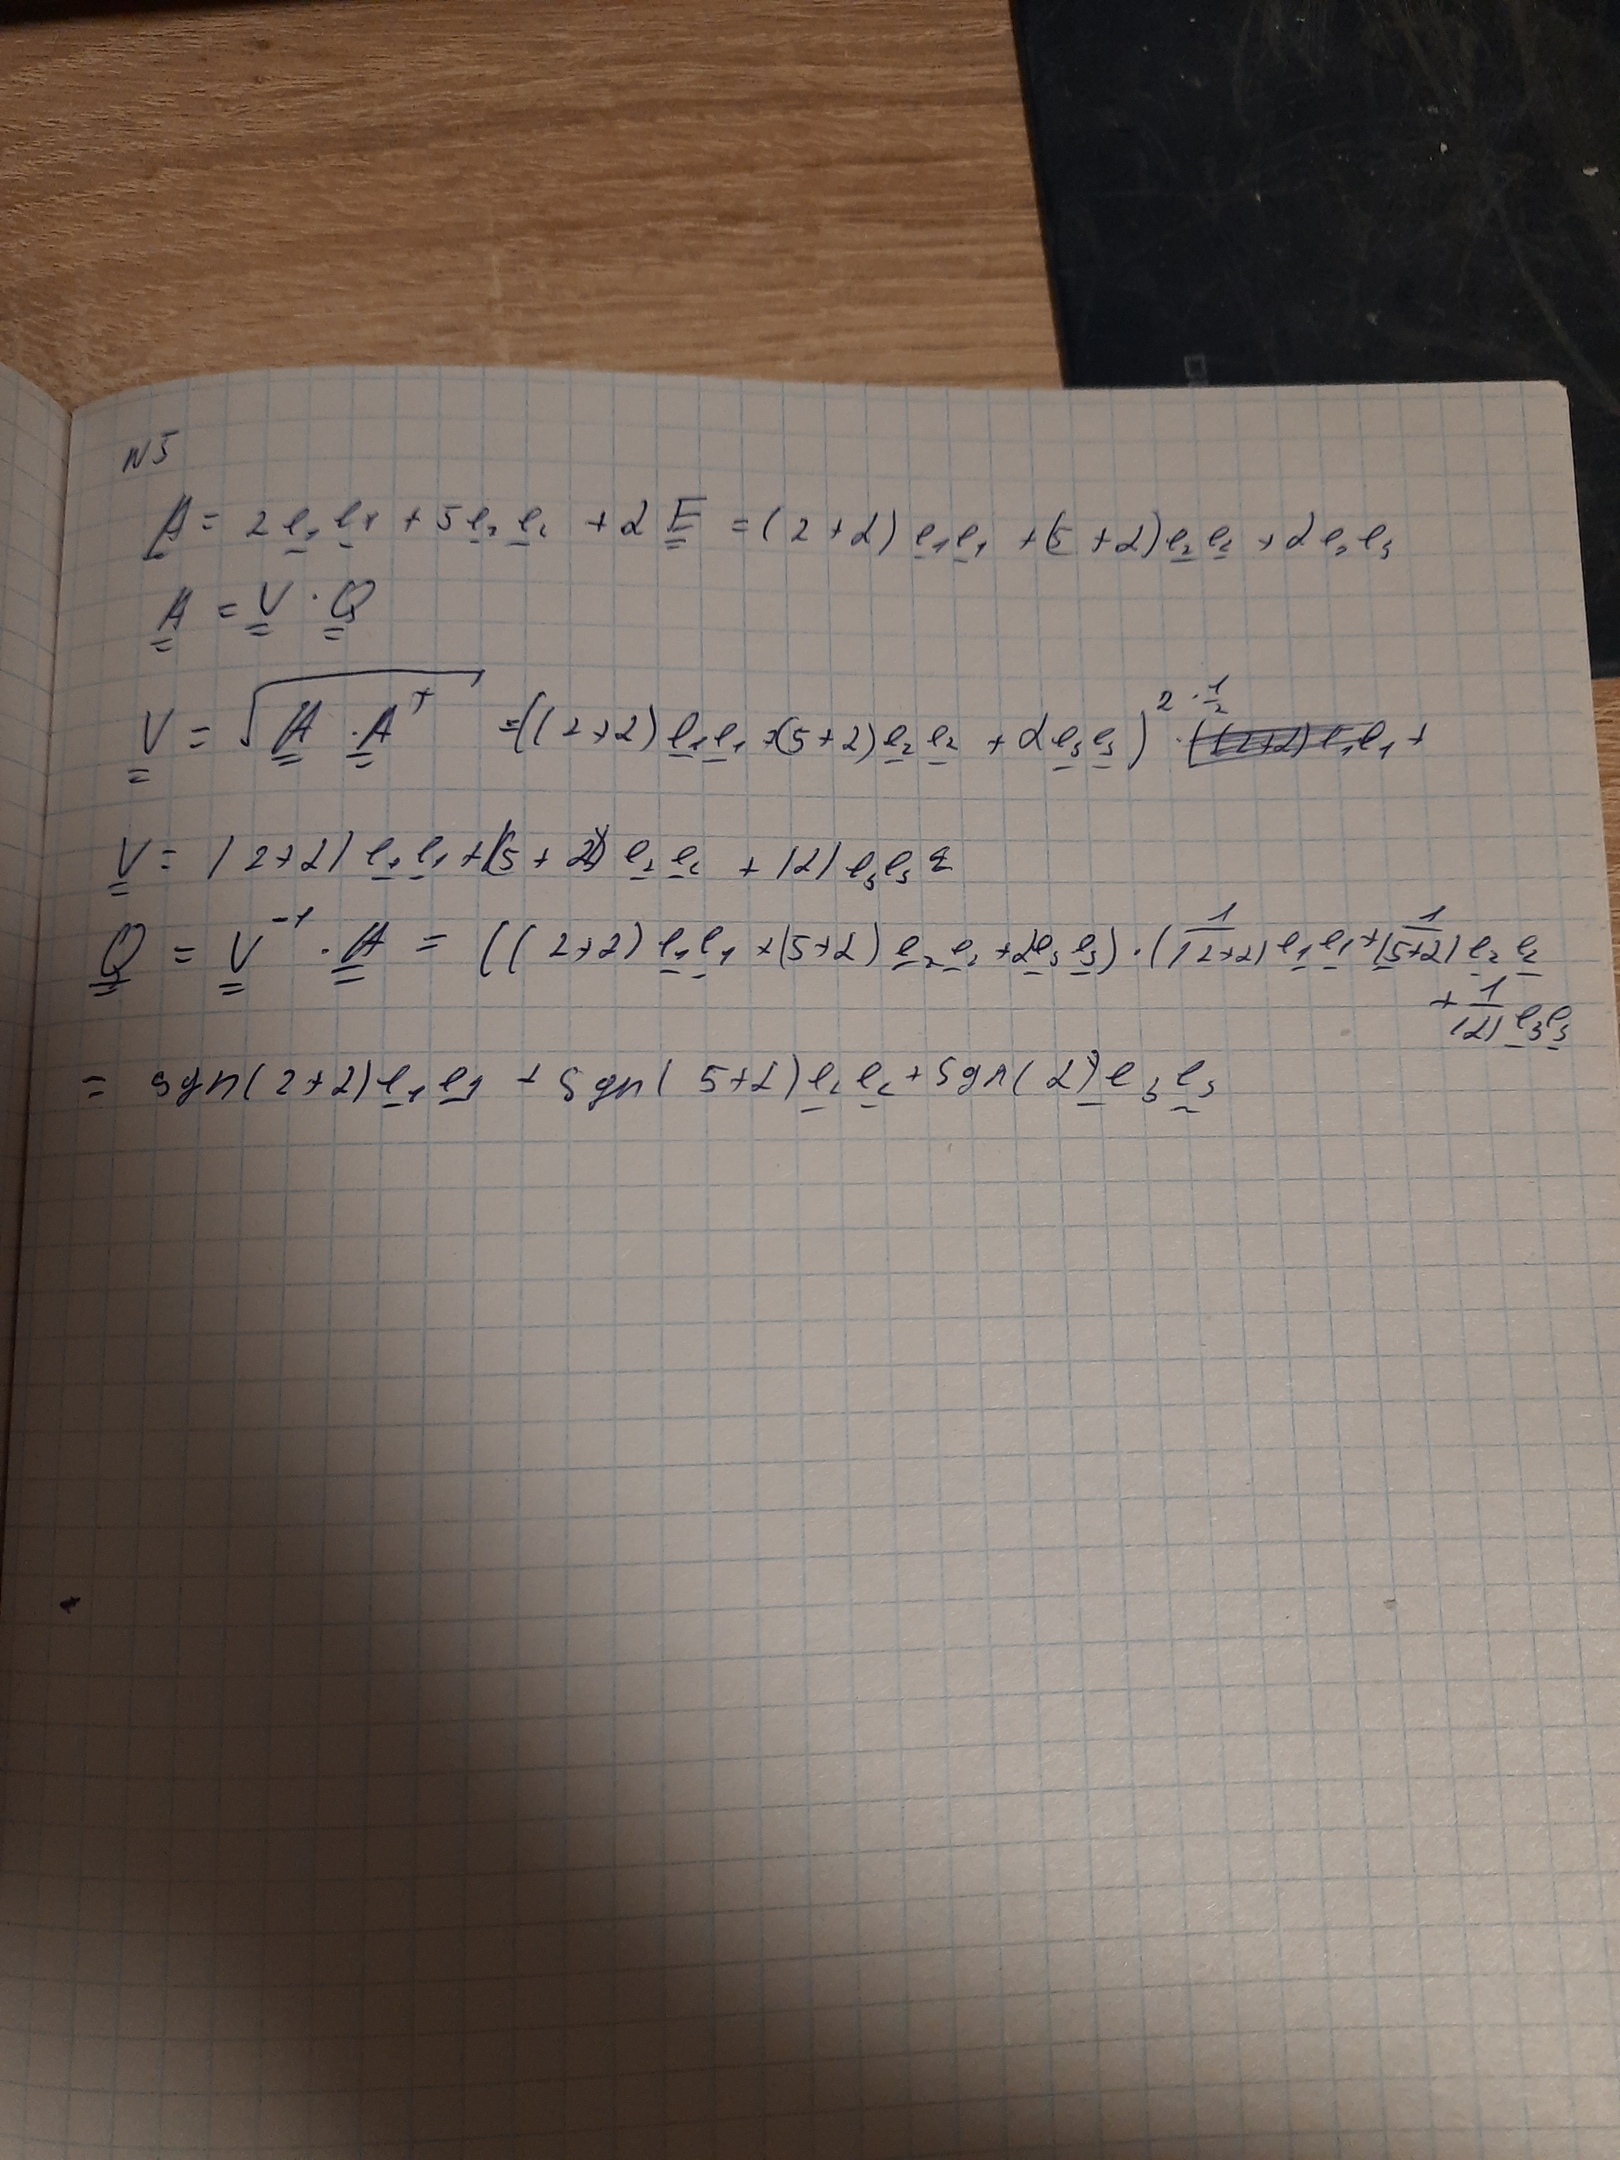 N5
A = 2e₁e₁ + 5e₂e₂ + αE = (2+α)e₁e₁ + (5+α)e₂e₂ + αe₃e₃
A = V · Q
V = √(A · Aᵀ) = ((2+α)e₁e₁ + (5+α)e₂e₂ + αe₃e₃)^(2·1/2) · e₁ +
V = |2+α|e₁e₁ + |5+α|e₂e₂ + |α|e₃e₃
Q = V⁻¹ · A = ((2+α)e₁e₁ + (5+α)e₂e₂ + αe₃e₃) · (1/|2+α| e₁e₁ + 1/|5+α| e₂e₂
+ 1/|α| e₃e₃
= sgn(2+α)e₁e₁ + sgn(5+α)e₂e₂ + sgn(α)e₃e₃